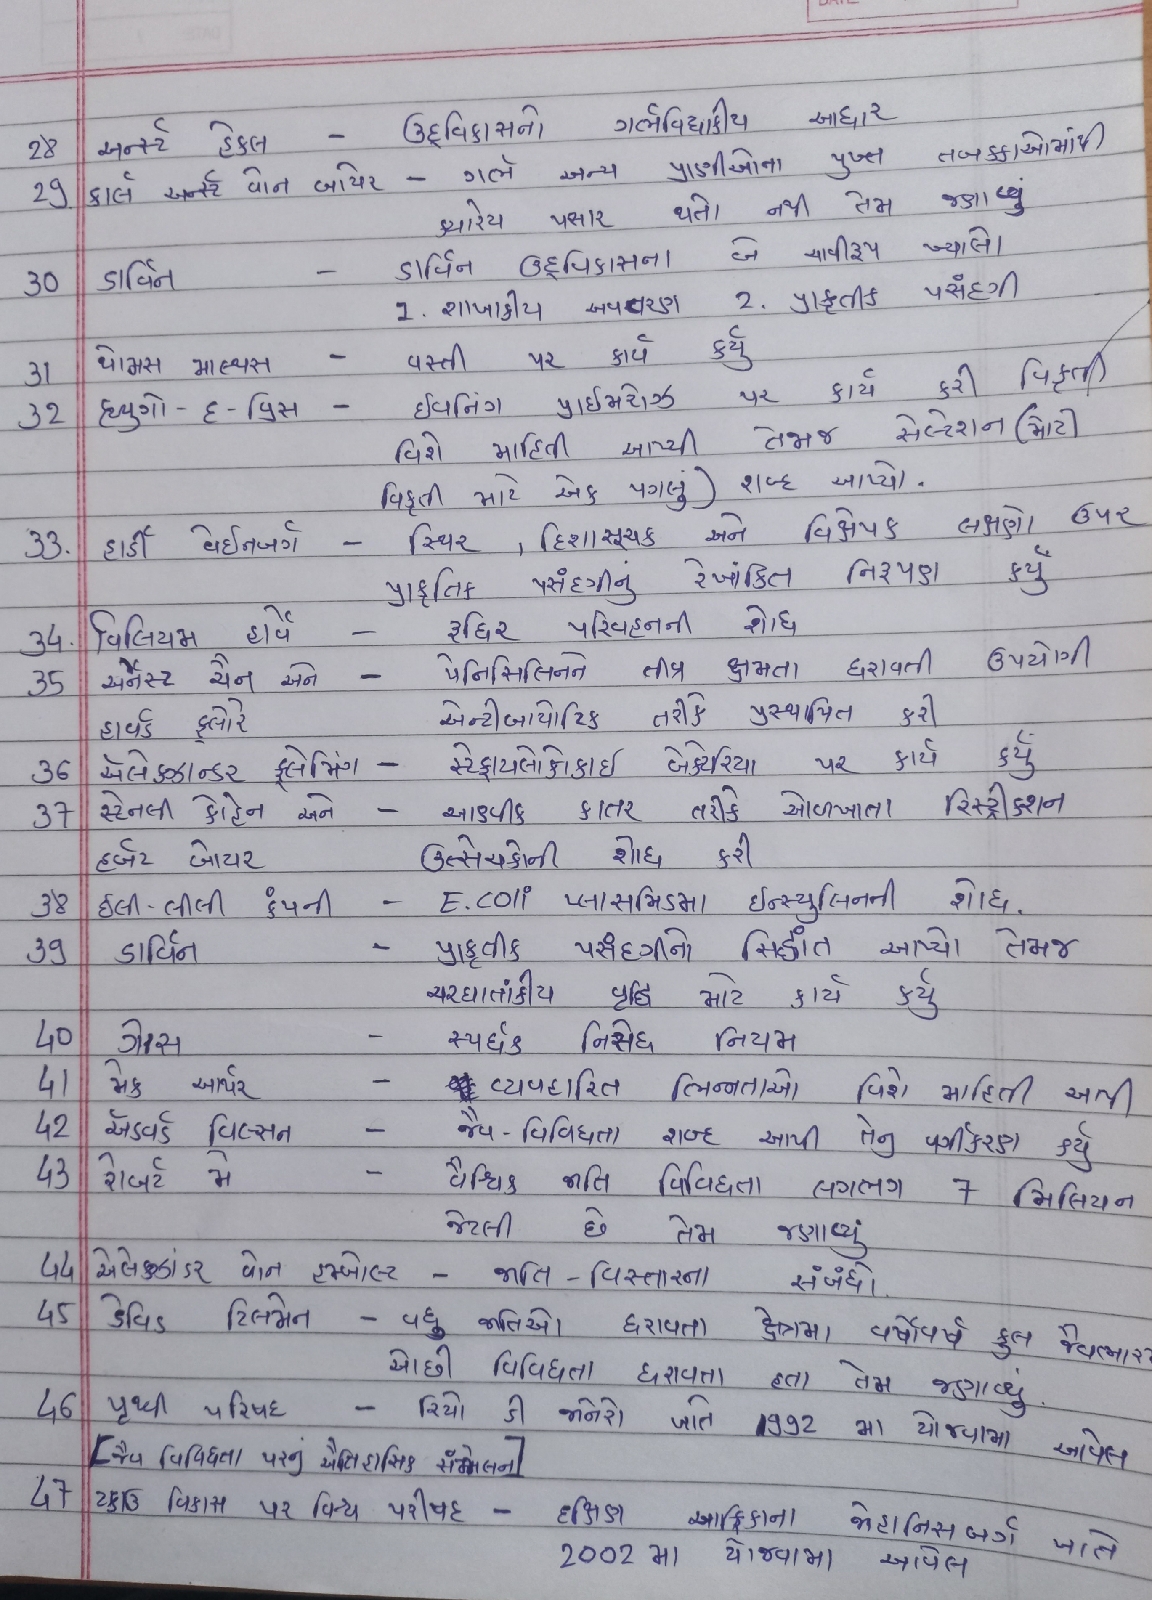 28 અર્નસ્ટ હેકલ – ઉદ્દવિકાસનો ગર્ભવિદ્યાકીય આધાર
29. કાર્લ અર્નસ્ટ વોન બાયેર – ગર્ભ અન્ય પ્રાણીઓના પુખ્ત તબક્કાઓમાંથી
ક્યારેય પસાર થતો નથી તેમ જણાવ્યું
30 ડાર્વિન – ડાર્વિન ઉદ્દવિકાસના બે ચાવીરૂપ ખ્યાલો
1. શાખાકીય અવતરણ 2. પ્રાકૃતીક પસંદગી
31 થોમસ માલ્થસ – વસ્તી પર કાર્ય કર્યુ
32 હ્યુગો-દ-વ્રિસ – ઈવનિંગ પ્રાઈમરોઝ પર કાર્ય કરી વિકૃતી
વિશે માહિતી આપી તેમજ સેલ્ટેશન (મોટી
વિકૃતી માટે એક પગલું) શબ્દ આપ્યો.
33. હાર્ડી વેઈનબર્ગ – સ્થિર, દિશાસૂચક અને વિક્ષેપક લક્ષણો ઉપર
પ્રાકૃતિક પસંદગીનું રેખાંકિત નિરૂપણ કર્યું
34. વિલિયમ હાર્વે – રૂધિર પરિવહનની શોધ
35 અર્નેસ્ટ ચૈન અને – પેનિસિલિનને તીવ્ર ક્ષમતા ધરાવતી ઉપયોગી
હાવર્ડ ફ્લોરે એન્ટીબાયોટિક તરીકે પ્રસ્થાપિત કરી
36 ઍલેક્ઝાન્ડર ફ્લેમિંગ – સ્ટેફાયલોકોકાઈ બેક્ટેરિયા પર કાર્ય કર્યું
37 સ્ટેનલી કોહેન અને – આણ્વીક કાતર તરીકે ઓળખાતા રિસ્ટ્રીક્શન
હર્બર્ટ બોયર ઉત્સેચકોની શોધ કરી
38 ઈલી-લીલી કંપની – E.coli પ્લાસમિડમા ઈન્સ્યુલિનની શોધ.
39 ડાર્વિન – પ્રાકૃતીક પસંદગીનો સિદ્ધાંત આપ્યો તેમજ
ચરઘાતાંકીય વૃદ્ધિ માટે કાર્ય કર્યુ
40 ગોસ – સ્પર્ધક નિસેધ નિયમ
41 મેક આર્થર – વ્યવહારિત ભિન્નતાઓ વિશે માહિતી આપી
42 ઍડવર્ડ વિલ્સન – જૈવ-વિવિધતા શબ્દ આપી તેનુ વર્ગીકરણ કર્યુ
43 રોબર્ટ મે – વૈશ્વિક જાતિ વિવિધતા લગભગ 7 મિલિયન
જેટલી છે તેમ જણાવ્યું
44 એલેક્ઝાંડર વોન હમ્બોલ્ટ – જાતિ-વિસ્તારના સંબંધો.
45 ડેવિડ ટિલમેન – વધુ જાતિઓ ધરાવતા ક્ષેત્રમા વર્ષોવર્ષ કુલ જૈવભાર
ઓછી વિવિધતા ધરાવતા હતા તેમ જણાવ્યું.
46 પૃથ્વી પરિષદ – રિયો ડી જાનેરો ખાતે 1992 મા યોજવામા આવેલ
[જૈવ વિવિધતા પરનું ઐતિહાસિક સંમ્મેલન]
47 ટકાઉ વિકાસ પર વિશ્વ પરીષદ – દક્ષિણ આફ્રિકાના જોહાનિસબર્ગ ખાતે
2002 મા યોજવામા આવેલ